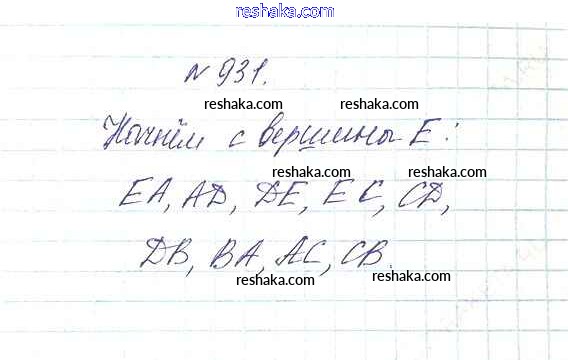 reshaka.com
№ 931.
reshaka.com reshaka.com
Начнём с вершины E:
reshaka.com reshaka.com
EA, AD, DE, EC, CD,
reshaka.com reshaka.com
DB, BA, AC, CB.
reshaka.com reshaka.com
reshaka.com